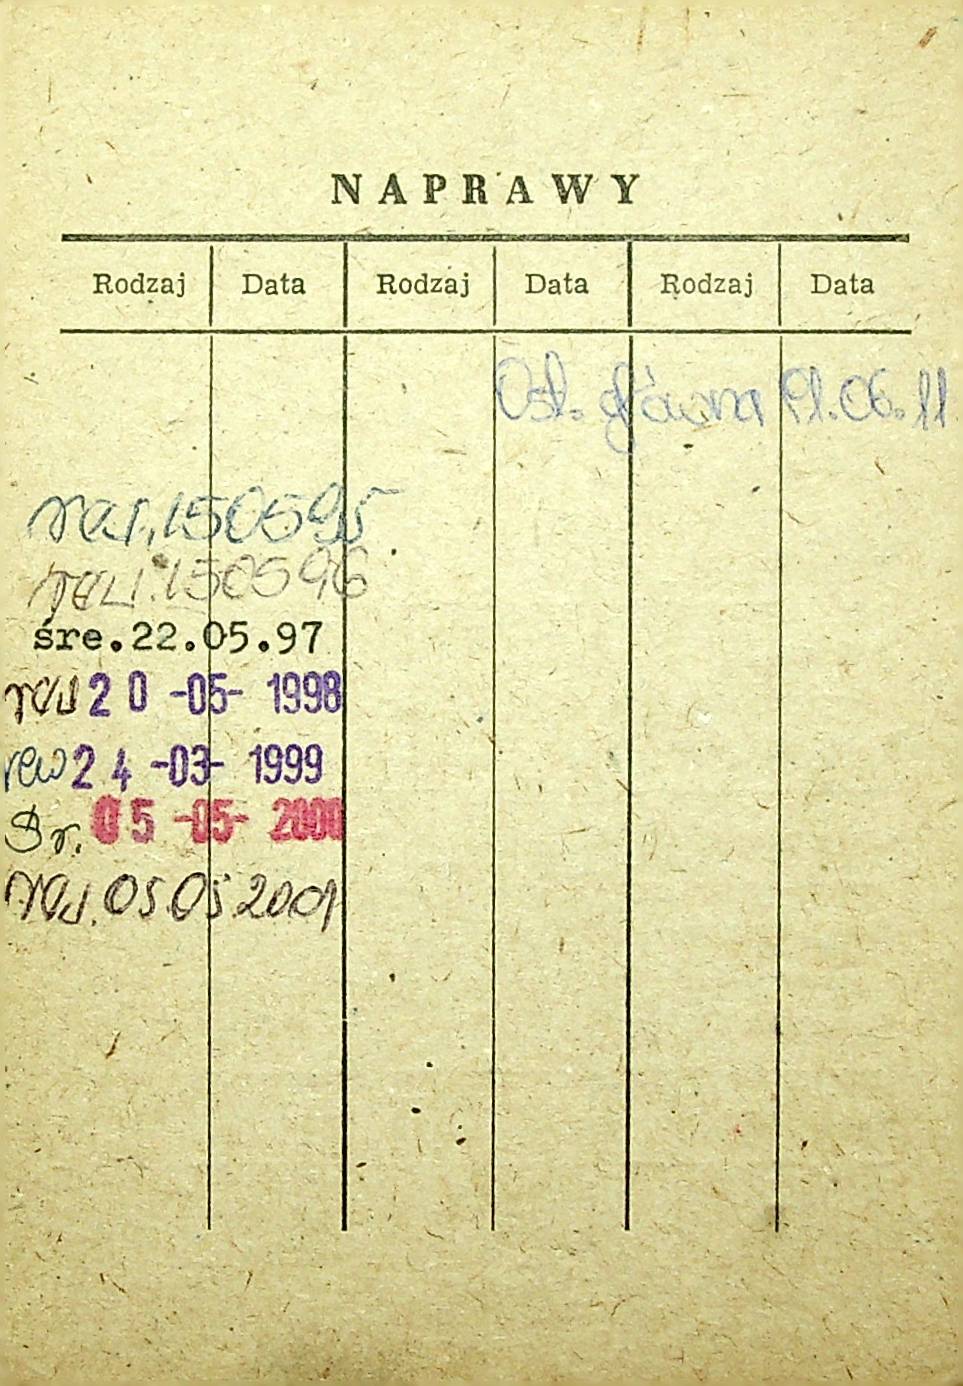 NAPRAWY
Rodzaj Data Rodzaj Data Rodzaj Data
główna
150595
150596
śre.22.05.97
rew 20 -05- 1998
rew 24 -03- 1999
Śr. 05 -05- 2000
05.05.2001